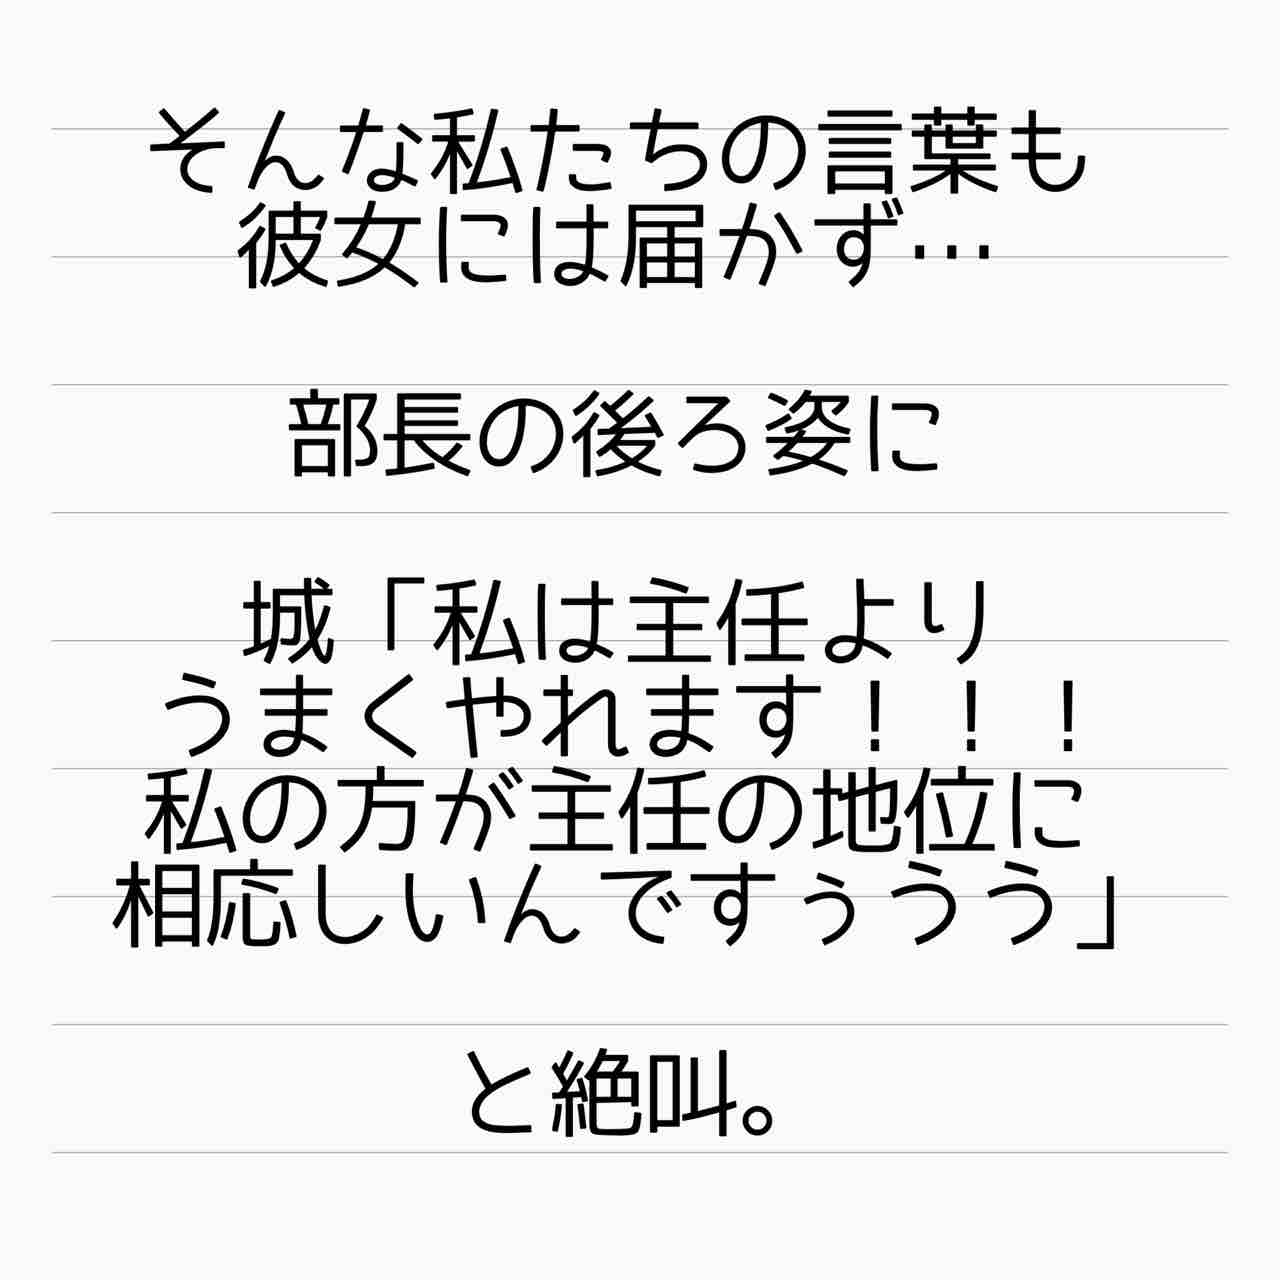 そんな私たちの言葉も
彼女には届かず…
部長の後ろ姿に
城「私は主任より
うまくやれます！！！
私の方が主任の地位に
相応しいんですぅうう」
と絶叫。